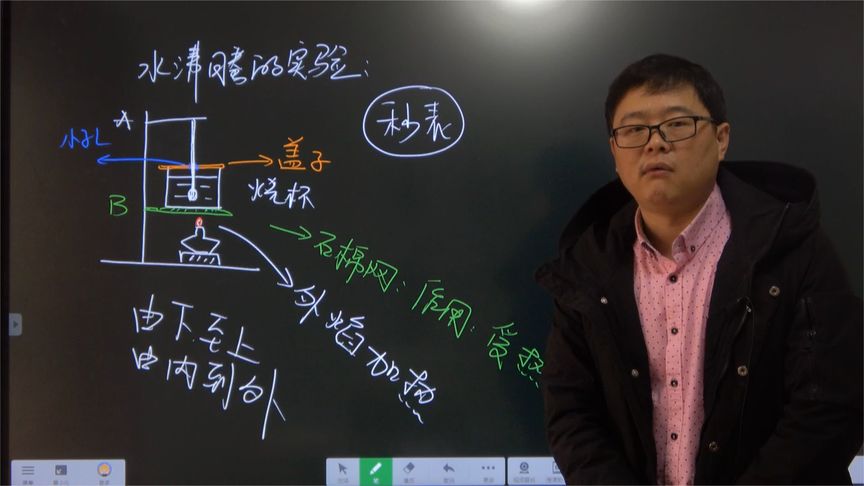 水沸腾的实验:
秒表
A
小孔
盖子
烧杯
B
石棉网: 受热
外焰加热
由下至上
由内到外